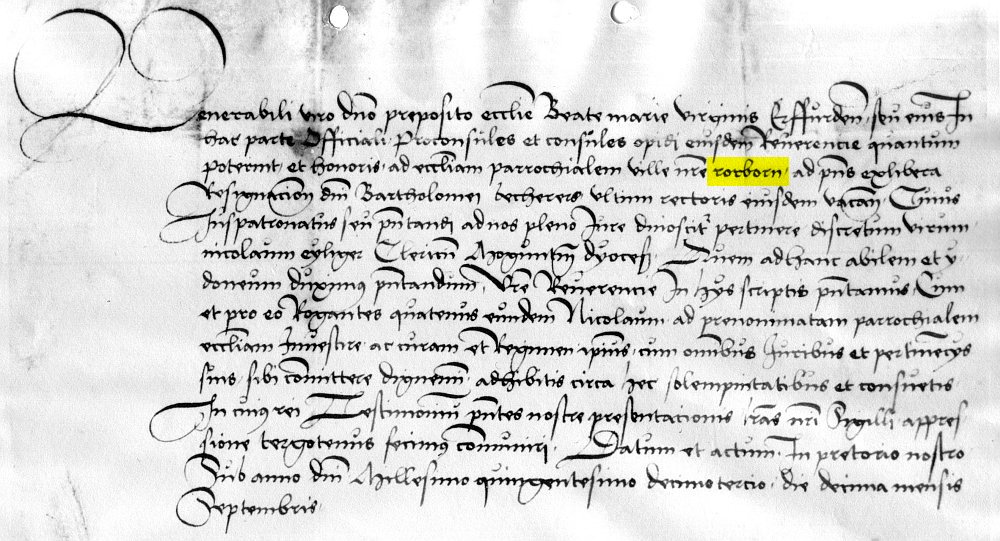 Venerabili viro dno preposito ecclie Beate marie virginis Erffurden seu eius In
hac parte Officiali Proconsules et consules opidi eiusdem Reverencie quantum
poterint et honoris ad eccliam parrochialem ville nre rorborn ad pns ex libera
Resignacion dni Bartholomei becherers ultimi rectoris eiusdem vacan Cuius
Iuspatronatus seu pntandi ad nos pleno Iure dinoscitr pertinere discretum virum
nicolaum Clericu Moguntin dyocesis Quem ad hanc abilem et y
doneum duximus pntandum Vre Reverencie In hys scriptis pntamus Cum
et pro eo Rogantes quatenus eundem Nicolaum ad prenominatam parrochialem
eccliam Investire ac curam et Regimen ipius cum omibus Iuribus et pertinecys
suis sibi comittere dignemi adhibitis circa hec solempnitatibus et consuetis
In cuius rei Testimoniu pntes nostre presentacionis lras nri Sigilli appres
sione tergotenus fecimus comuniri Datum et actum In pretorio nostro
Sub anno dni Millesimo quingentesimo decimotercio die decima mensis
Septembris